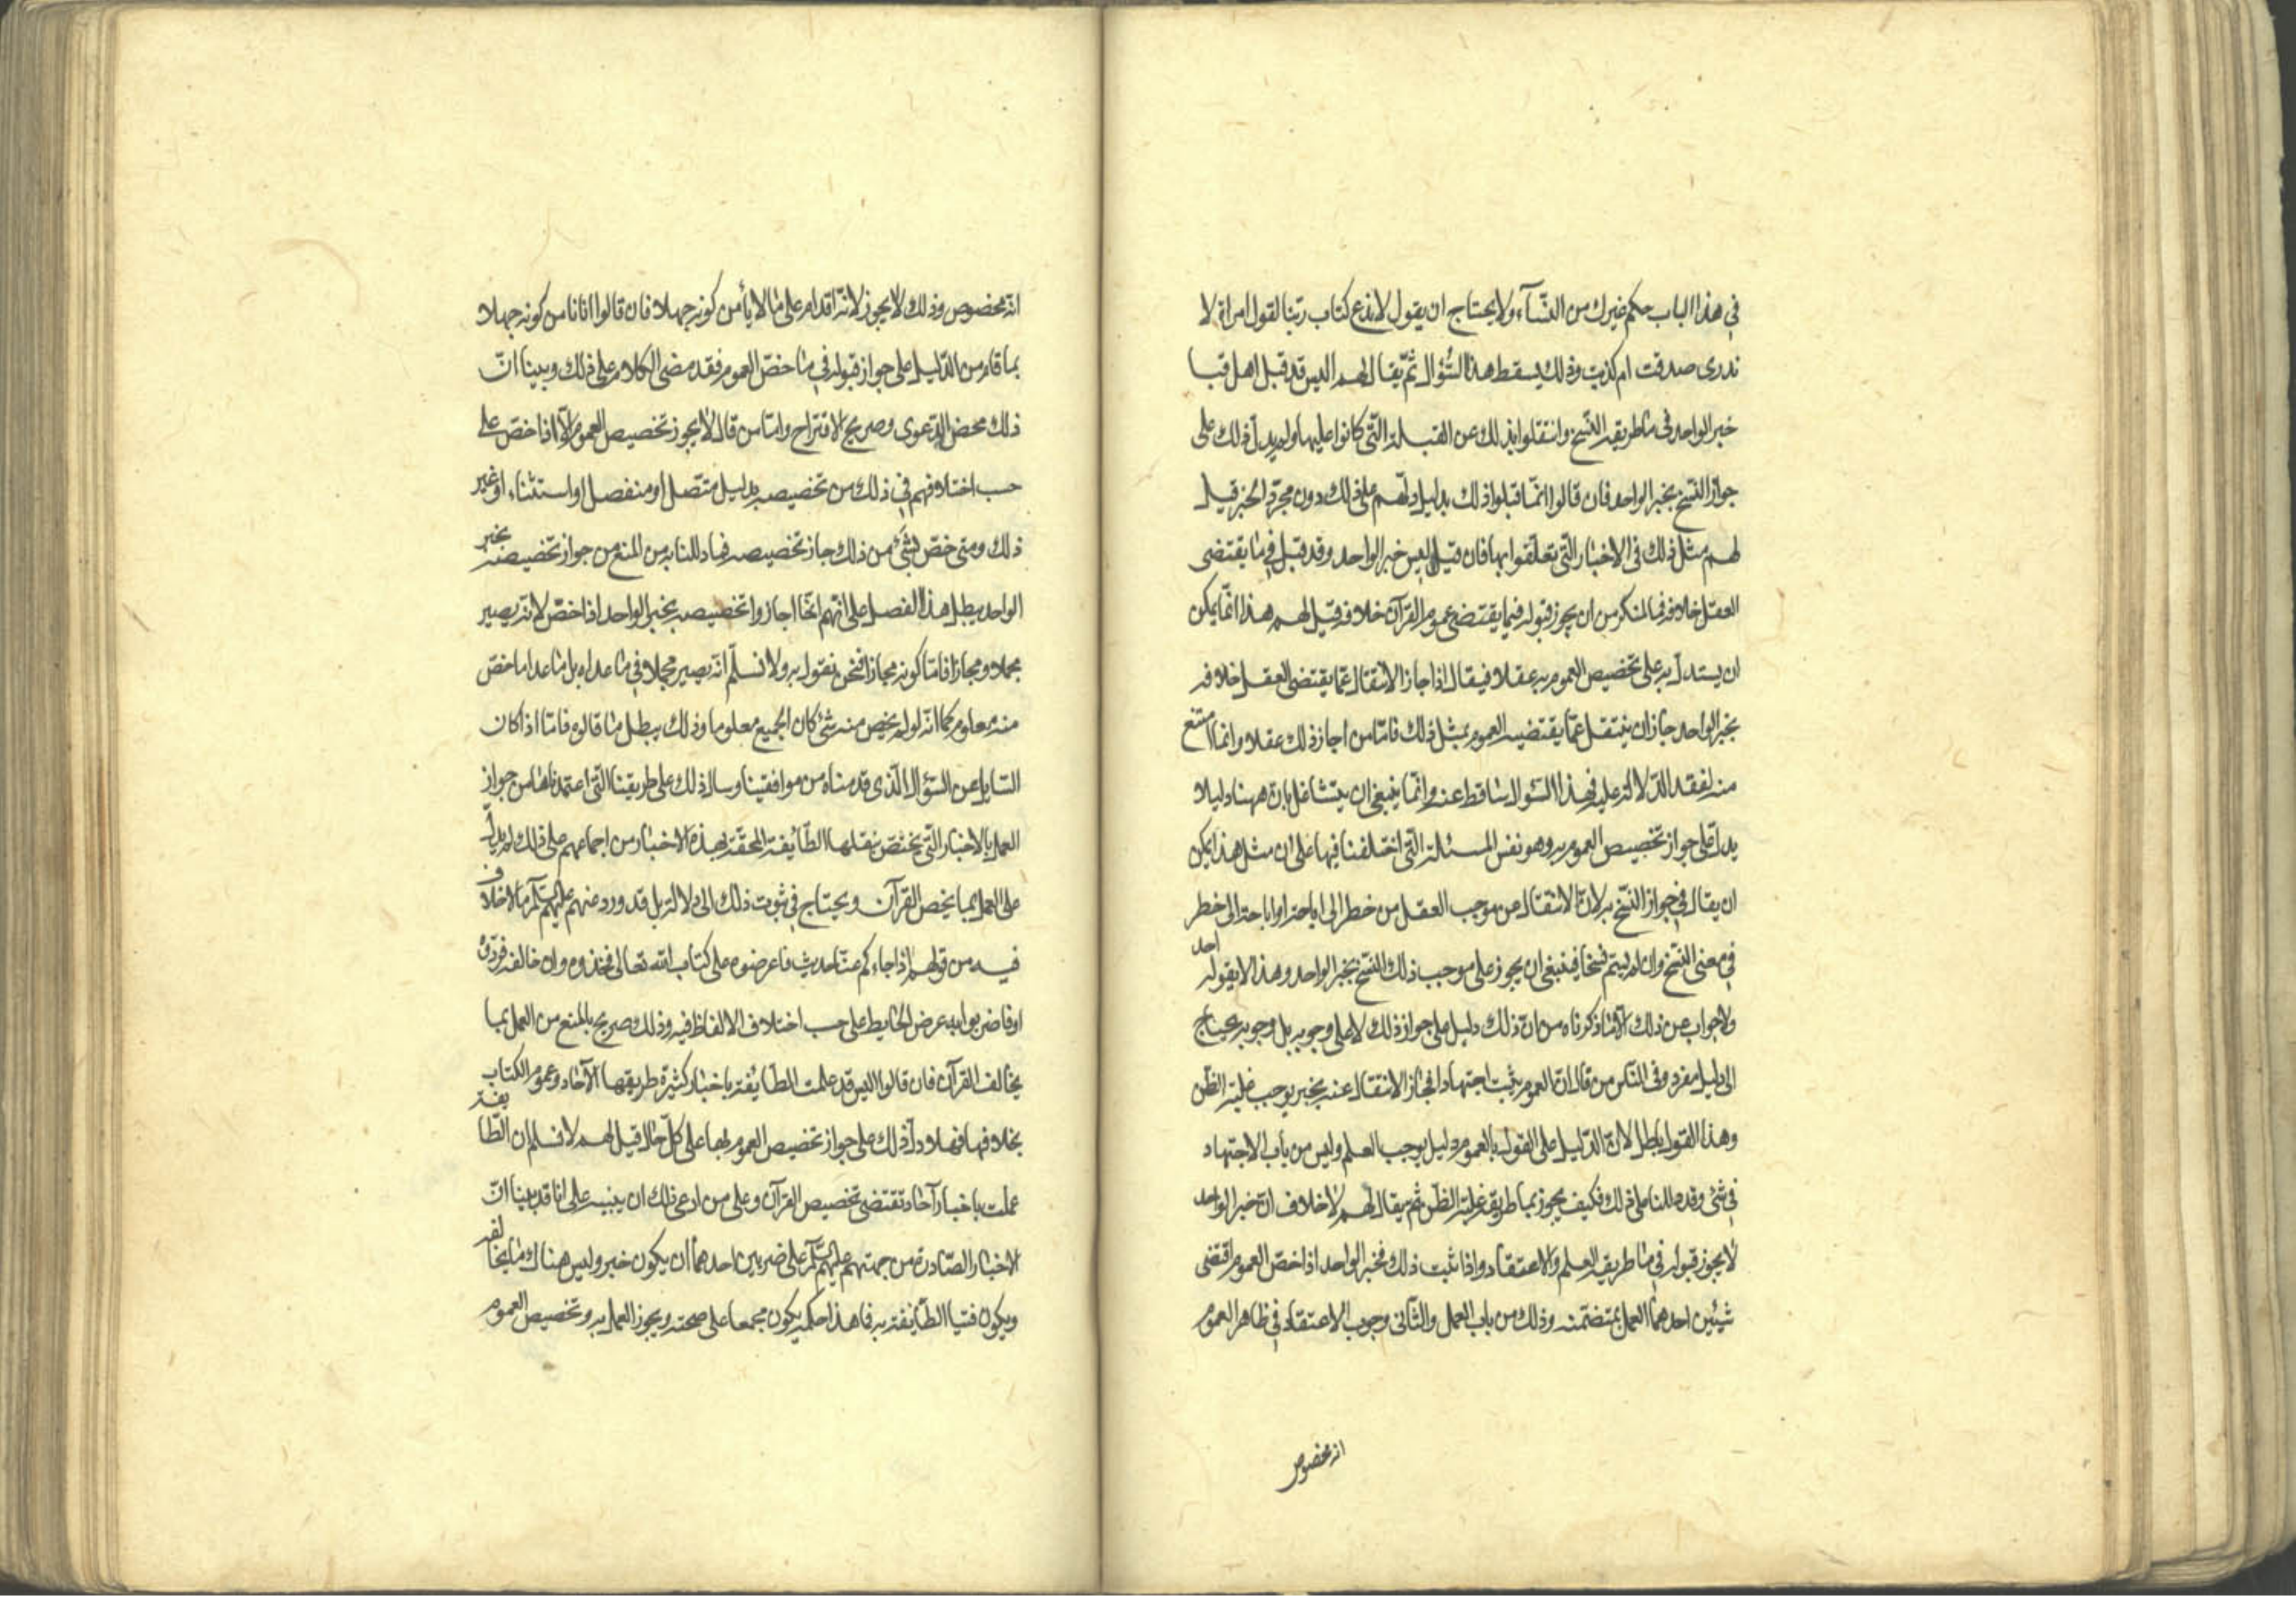 في هذا الباب حكم غيرك من النسآء ولا يحتاج ان يقول لا ندع كتاب ربنا لقول امراة لا
ندرى صدقت ام كذبت وذلك يسقط هذا السُّؤال ثمّ يقال لهم اليس قد قبل اهل قبا
خبر الواحد فى ما طريقه النسخ وانتقلوا بذلك عن القبلة الّتى كانوا عليها ولم يدلّ ذلك على
جواز النسخ بخبر الواحد فان قالوا انّما قبلوا ذلك بدليل دلّهم على ذلك دون مجرّد الخبر قيل
لهم مثل ذلك فى الاخبار الّتى تعلّقوا بها فان قيل اليس خبر الواحد وقد قبل في ما يقتضى
العقل خلافه فما المنكر من ان يجوز قبوله فيما يقتضى عموم القرآن خلافه قيل لهم هذا انّما يمكن
ان يستدلّ به على تخصيص العموم به عقلا فيقال اذا جاز الانتقال عمّا يقتضى العقل خلافه
بخبر الواحد جاز ان ينتقل عمّا يقتضيه العموم بمثل ذلك فامّا من اجاز ذلك عقلا وانما امتنع
منه لفقد الدّلالة عليه فهذا السّؤال ساقط عنه وانّما ينبغى ان يتشاغل بان ههنا دليلا
يدلّ على جواز تخصيص العموم به وهو نفس المسئلة الّتى اختلفنا فيها على ان مثل هذا يمكن
ان يقال في جواز النّسخ به لانّ الانتقال من موجب العقل من خطر الى اباحة او اباحة الى خطر
في معنى النسخ وان لم يسمّ نسخا فينبغى ان يجوز على موجب ذلك النسخ بخبر الواحد وهذا لا يقوله احد
ولا جواب عن ذلك الّا ما ذكرناه من انّ ذلك دليل على جواز ذلك لا على وجوبه بل وجوبه يحتاج
الى دليل مفرد وفى النّاس من قال انّ العموم يثبت اجتهادا فجاز الانتقال عنه بخبر يوجب غلبة الظن
وهذا القول باطل لانّ الدّليل على القول بالعموم دليل يوجب العلم وليس من باب الاجتهاد
في شئ وقد دللنا على ذلك فكيف يجوز بما طريقه غلبة الظنّ ثم يقال لهم لا خلاف انّ خبر الواحد
لا يجوز قبوله في ما طريقه العلم والاعتقاد واذا ثبت ذلك فخبر الواحد اذا خصّ العموم اقتضى
شيئين احدهما العمل بمتضمّنه وذلك من باب العمل والثّانى وجوب الاعتقاد في ظاهر العموم
انه مخصوص
انّه مخصوص وذلك لا يجوز لانّه اقدام على ما لا يأمن كونه جهلا فان قالوا انا نامن كونه جهلا
بما قام من الدّليل على جواز قبوله في ما خصّ العموم فقد مضى الكلام على ذلك وبينا انّ
ذلك محض الدّعوى وصريح الاقتراح وامّا من قال لا يجوز تخصيص العموم الّا اذا خصّ على
حسب اختلافهم في ذلك من تخصيصه بدليل متّصل او منفصل او استثناء او غير
ذلك ومتى خصّ بشئ من ذلك جاز تخصيصه فما دللنا به من المنع من جواز تخصيصه بخبر
الواحد يبطل هذا الفصل على انّهم انّما اجازوا تخصيصه بخبر الواحد اذا خصّ لانّه يصير
مجملا ومجازا فامّا كونه مجازا فنحن نقول به ولا نسلّم انّه يصير مجملا في ما عداه بل ما عدا ما خصّ
منه معلوم كما انّه لو لم يخص منه شئ كان الجميع معلوما وذلك يبطل ما قالوه فامّا اذا كان
السّايل عن السّؤال الّذى قدمناه من موافقينا وسال ذلك على طريقتنا الّتى اعتمدناها من جواز
العمل بالاخبار الّتى يختصّ بنقلها الطّايفة المحقّة لهذه الاخبار من اجماعهم على ذلك لم يدلّ
على العمل بما يخص القرآن ويحتاج في ثبوت ذلك الى دلالة بل قد ورد عنهم عليهم السّلم ما لا خلاف
فيه من قولهم اذا جاءكم عنّا حديث فاعرضوه على كتاب الله تعالى فخذوه وان خالفه فردّوه
او فاضربوا به عرض الحايط على حسب اختلاف الالفاظ فيه وذلك صريح بالمنع من العمل بما
يخالف القرآن فان قالوا اليس قد علمت الطّايفة باخبار كثيرة طريقها الآحاد وعموم الكتاب
بخلافها فهلّا دلّ ذلك على جواز تخصيص العموم بها على كلّ حال قيل لهم لا نسلم ان الطّايفة
عملت باخبار آحاد تقتضى تخصيص القرآن وعلى من ادعى ذلك ان يبينه على انا قد بينا انّ
الاخبار الصّادرة من جهتهم عليهم السّلم على ضربين احدهما ان يكون خبر وليس هناك ما يخالفه
ويكون فتيا الطّايفة به فما هذا حكمه يكون مجمعا على صحته ويجوز العمل به وتخصيص العموم